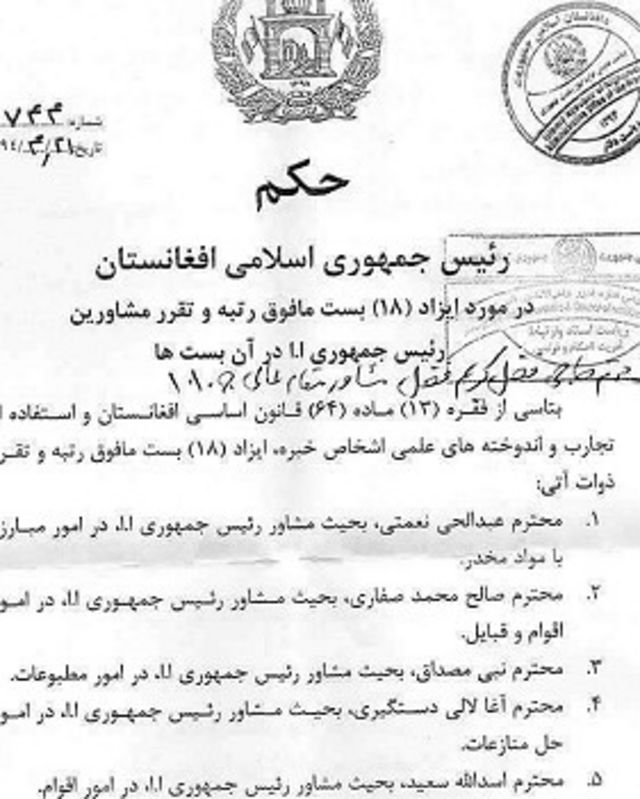 شماره: ۷۴۴
تاریخ: ۹۴/۴/۲۱
حکم
رئیس جمهوری اسلامی افغانستان
در مورد ایزاد (۱۸) بست مافوق رتبه و تقرر مشاورین
رئیس جمهوری ا.ا در آن بست ها
بتاسی از فقره (۱۳) ماده (۶۴) قانون اساسی افغانستان و استفاده
تجارب و آندوخته های علمی اشخاص خبره، ایزاد (۱۸) بست مافوق رتبه و تقر
ذوات آتی:
۱. محترم عبدالحی نعمتی، بحیث مشاور رئیس جمهوری ا.ا، در امور مبارز
با مواد مخدر.
۲. محترم صالح محمد صفاری، بحیث مشاور رئیس جمهوری ا.ا، در امو
اقوام و قبایل.
۳. محترم نبی مصداق، بحیث مشاور رئیس جمهوری ا.ا، در امور مطبوعات.
۴. محترم آغا لالی دستگیری، بحیث مشاور رئیس جمهوری ا.ا، در امو
حل منازعات.
۵. محترم اسدالله سعید، بحیث مشاور رئیس جمهوری ا.ا، در امور اقوام.